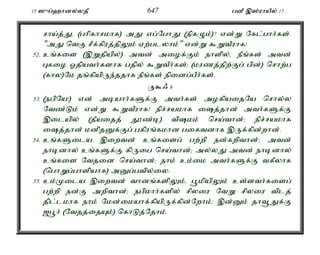 15 ஸுப்ஹானல்லதீ 647 பனீ இஸ்ராயீல் 17
சாய்த்து, (பரிகாசமாக) அது எப்போது (நிகழும்)! என்று கேட்பார்கள்.
"அது வெகு சீக்கிரத்திலும் ஏற்படலாம்" என்று கூறுவீராக!
52. உங்களை (இறுதியில்) அவன் அழைக்கும் நாளில், நீங்கள் அவன்
புகழை ஓதியவர்களாக பதில் கூறுவீர்கள்; (மரணத்திற்குப் பின்) சொற்ப
(கால)மே தங்கியிருந்ததாக நீங்கள் நினைப்பீர்கள்.
ருகூ 6
53. (நபியே!) என் அடியார்களுக்கு அவர்கள் அழகியதையே சொல்ல
வேண்டும் என்று கூறுவீராக! நிச்சயமாக ஷைத்தான் அவர்களுக்கு
இடையில் (தீயதைத் தூண்டி) விஷமம் செய்வான்; நிச்சயமாக
ஷைத்தான் மனிதனுக்குப் பகிரங்கமான பகைவனாக இருக்கின்றான்.
54. உங்களுடைய இறைவன் உங்களைப் பற்றி நன்கறிவான்; அவன்
நாடினால் உங்களுக்கு கிருபை செய்வான்; அல்லது அவன் நாடினால்
உங்களை வேதனை செய்வான்; நாம் உம்மை அவர்களுக்கு வகீலாக
(பொறுப்பாளியாக) அனுப்பவில்லை.
55. உம்முடைய இறைவன் வானங்களிலும், பூமியிலும் உள்ளவர்களைப்
பற்றி நன்கு அறிவான்; நபிமார்களில் சிலரை வேறு சிலரை விடத்
திட்டமாக நாம் மேன்மையாக்கியிருக்கின்றோம்; இன்னும் தாவூதுக்கு
ஜபூர் (வேதத்தையும்) கொடுத்தோம்.